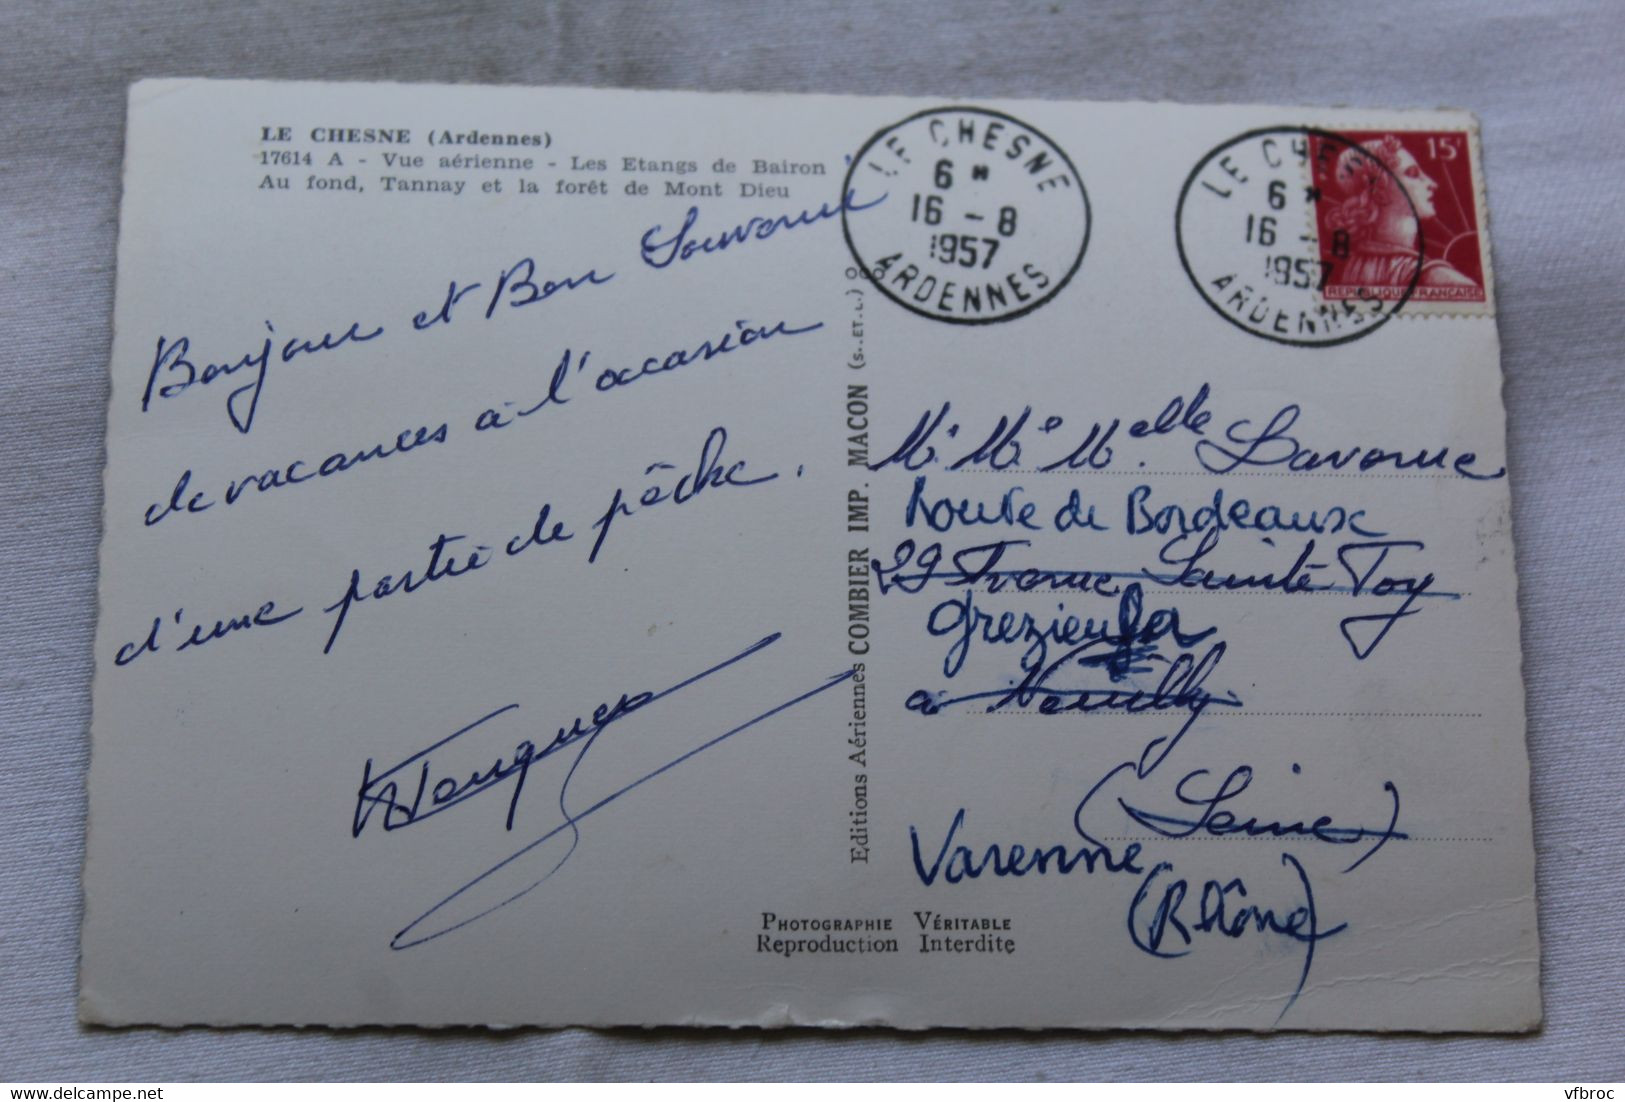 LE CHESNE (Ardennes)
17614 A - Vue aérienne - Les Etangs de Bairon
Au fond, Tannay et la forêt de Mont Dieu
Bonjour et Bon Souvenir
de vacances à l'occasion
d'une partie de pêche.
Editions Aériennes COMBIER IMP. MACON (S.-ET-L.)
LE CHESNE
6 *
16 - 8
1957
ARDENNES
LE CHESNE
6 *
16 - 8
1957
ARDENNES
15F
REPUBLIQUE FRANÇAISE
Mr Me Melle
Route de Bordeaux
29 Sainte Foy
Grezieu
à Neuilly
(Seine)
Varenne
(Rhône)
PHOTOGRAPHIE VÉRITABLE
Reproduction Interdite
vfbroc